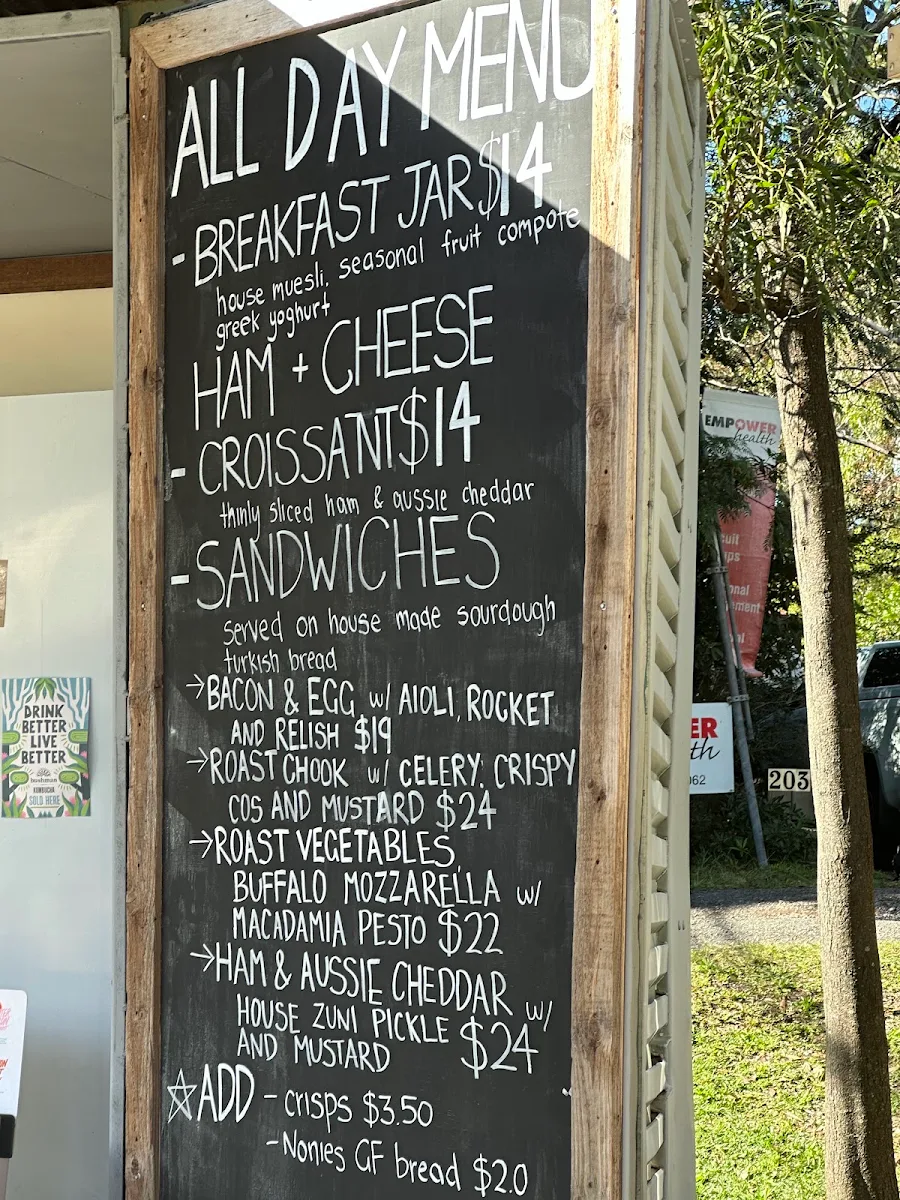 ALL DAY MENU
- BREAKFAST JAR $14
house muesli, seasonal fruit compote
greek yoghurt
HAM + CHEESE
- CROISSANT $14
thinly sliced ham & aussie cheddar
- SANDWICHES
served on house made sourdough
turkish bread
→ BACON & EGG w/ AIOLI, ROCKET
AND RELISH $19
→ ROAST CHOOK w/ CELERY, CRISPY
COS AND MUSTARD $24
→ ROAST VEGETABLES,
BUFFALO MOZZARELLA w/
MACADAMIA PESTO $22
→ HAM & AUSSIE CHEDDAR w/
HOUSE ZUNI PICKLE $24
AND MUSTARD
☆ ADD - crisps $3.50
- Nonies GF bread $2.0
DRINK
BETTER
LIVE
BETTER
KOMBUCHA
SOLD HERE
EMPOWER
health
ER
th
203